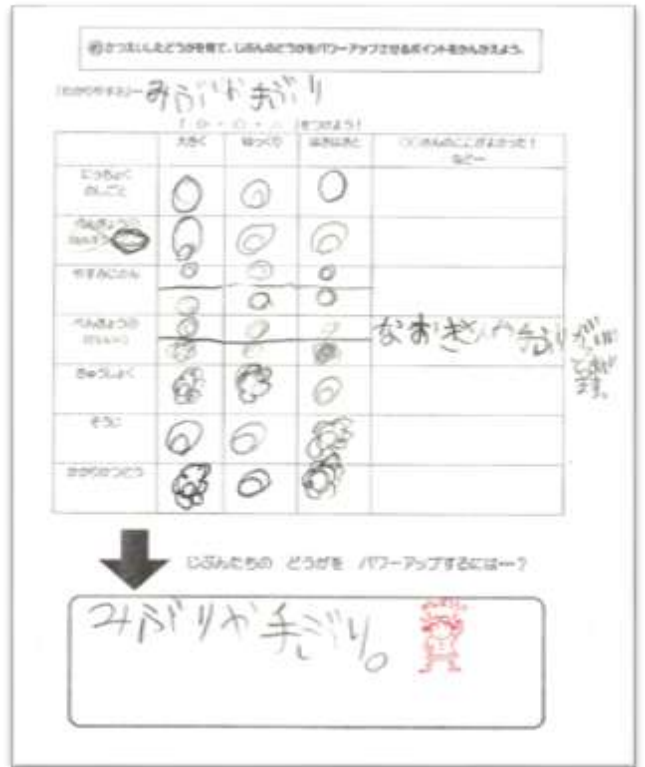 ㋱さつえいしたどうがを見て、じぶんのどうがをパワーアップさせるポイントをかんがえよう。
みぶりや手ぶり
をつけよう！
大きく ゆっくり はきはきと ○○さんのここがよかった！
など…
にっちょく
のしごと
べんきょう①
やすみじかん
べんきょう②
なおきさんや手ぶりが
ます。
きゅうしょく
そうじ
かかりかつどう
じぶんたちの どうがを パワーアップするには…？
みぶりや手ぶり。